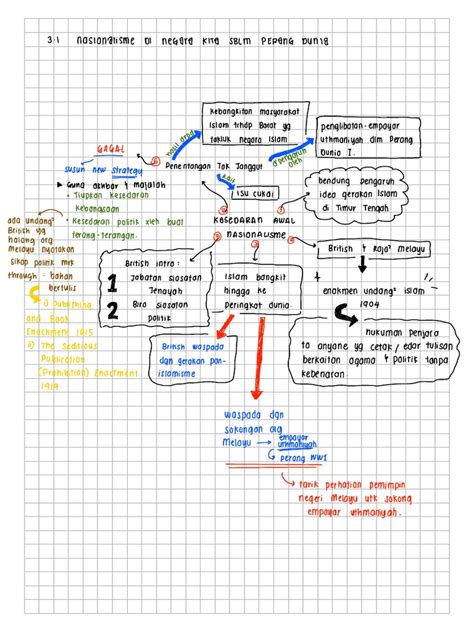 3.1 nasionalisme di negara kita sblm perang dunia
kebangkitan masyarakat
Islam trhdp Barat yg
takluk negara Islam
penglibatan empayar
uthmaniyah dlm Perang
Dunia I.
GAGAL
susun new strategy
Penentangan Tok Janggut
dipengaruhi
oleh
isu cukai
▸ Guna akhbar & majalah
• Tiupkan kesedaran
kebangsaan
• Kesedaran politik xleh buat
terang-terangan.
ada undang²
British yg
halang org
Melayu nyatakan
sikap politik mrk
through : bahan
bertulis
i) Publishing
and Book
Enactment 1915
ii) The Seditious
Publication
(Prohibition) Enactment
1919
KESEDARAN AWAL
NASIONALISME
bendung pengaruh
idea gerakan Islam
di Timur Tengah
British & Raja² melayu
enakmen undang² islam
1904
hukuman penjara
to anyone yg cetak / edar tulisan
berkaitan agama & politik tanpa
kebenaran.
British intro :
1 Jabatan Siasatan
Jenayah
2 Biro siasatan
politik
Islam bangkit
hingga ke
peringkat dunia.
British waspada
dgn gerakan pan-
islamisme
waspada dgn
sokongan org
Melayu → empayar
uthmaniyah
perang WW1
tarik perhatian pemimpin
negeri Melayu utk sokong
empayar uthmaniyah.